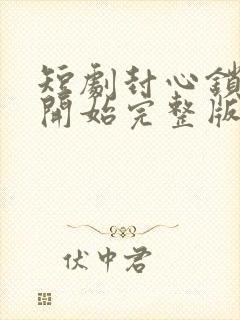 短劇封心鎖
開始完整版
伏中君